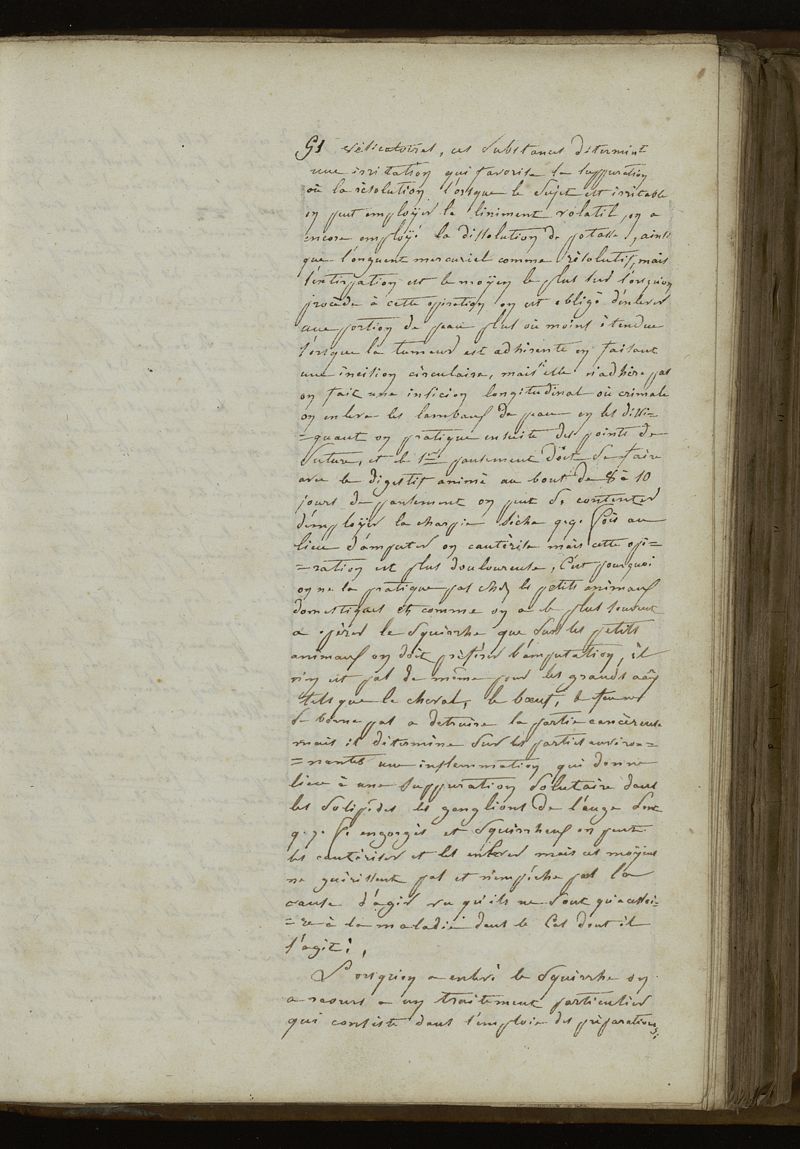 91 vésicatoires, ces substances déterminent
une irritation qui favorise la suppuration
où la résolution lorsque le sujet est irritable
on peut employer le liniment volatil, on a
encore employé la dissolution de potasse, ainsi
que l'onguent mercuriel comme résolutif, mais
l'extirpation est le moyen le plus sur lorsqu'on
procède à cette opération on est obligé d'enlever
une portion de peau plus où moins étendue
lorsque la tumeur est adhérente en faisant
une incision circulaire, mais si elle n'adhère pas
on fait une insicion longitudinal où crucиale
on enlève les lambeaux de peau en les dissé=
=quant on pratique ensuite des points de
suture, et le 1er pansement doit se faire
avec le digestif animé au bout de 8 à 10
jours de pansement on peut se contenter
d'employer la charpie sèche q.q. fois au
lieu d'amputer on cautérise mais cette opé=
=ration est plus douloureuse, C'est pourquoi
on ne la pratique pas chez les petits animaux
domestiques et comme on a le plus souvent
a opérer le squirrhe que sur les petits
animaux on doit préférer l'amputation, il
n'en est pas de même pour les grands aâx
tels que le cheval, le bœuf, le feu ne
se borne pas a detruire la partie cancéreuse
mais il détermine sur les parties environ=
=nantes une inflammation qui donne
lieu à une suppuration salutaire dans
les solipèdes les ganglions de l'auge sont
q.q. fs engorgés et squirrheux on peut
les cautériser et les enlever mais ces moyens
ne guérissent pas et n'empêche pas la
cause d'agir vu qu'ils ne sont qu'accessoi=
=re à la maladie dans le Cas dont il
s'agit;
Lorsqu'on a enlevé le squirrhe on
a recours a un traitement particulier
qui consiste dans l'emploie des préparations